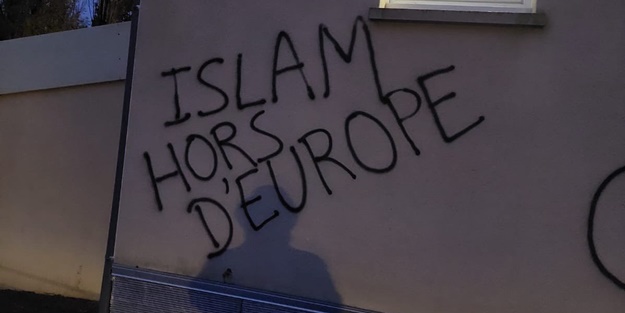 ISLAM
HORS
D'EUROPE